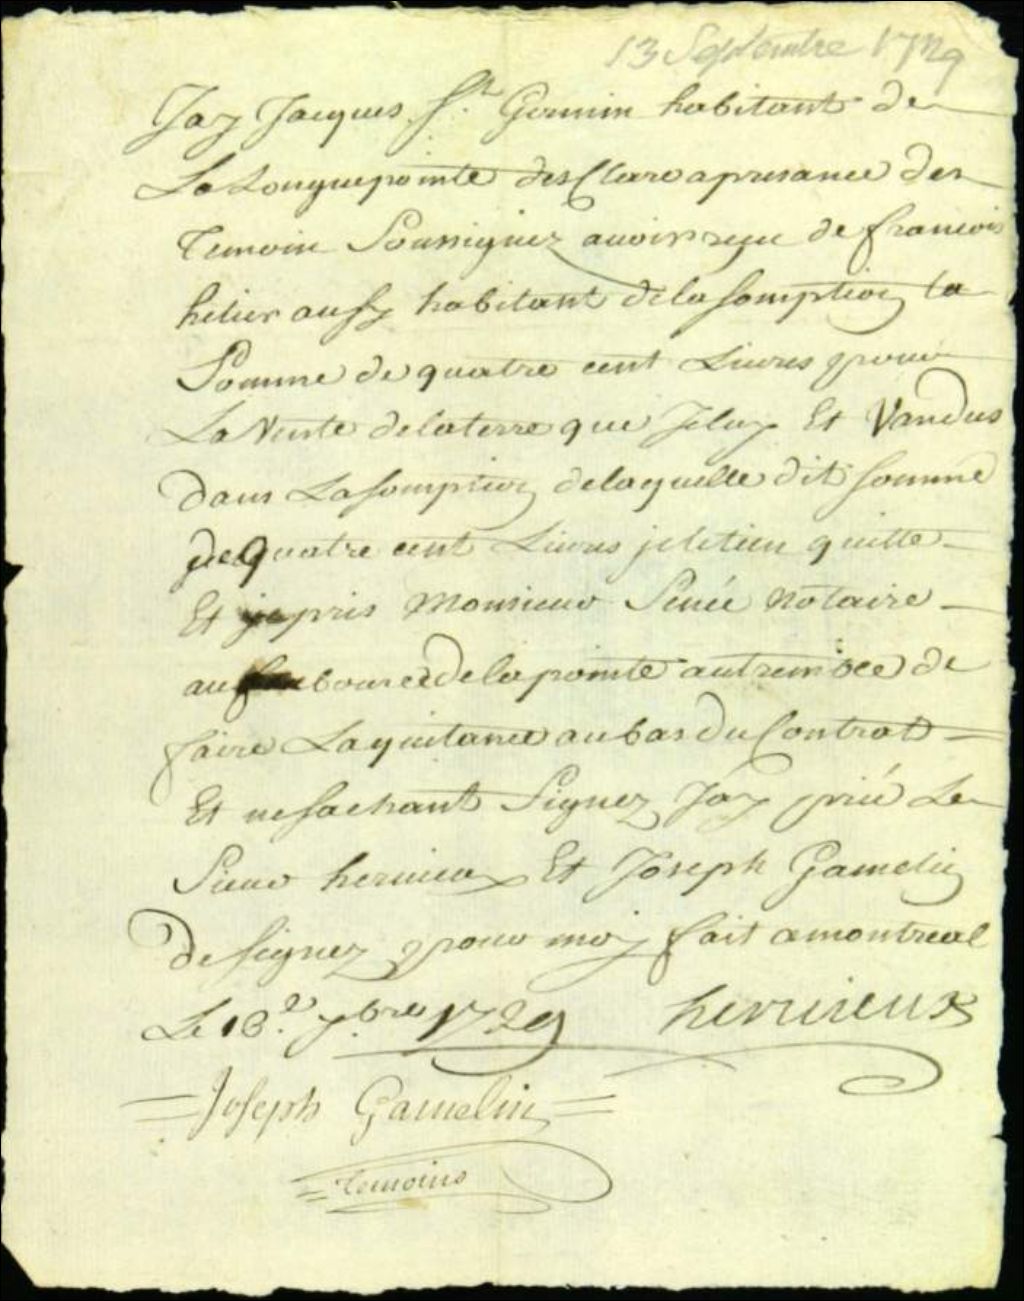 13 Septembre 1729
Jay Jacques St Germin habitant de
La Longuepointe desClare a presance des
temoin Soussignez avoir reçu de francois
hetier aussy habitant de la somption la
Somme de quatre cent Livres pour
La Vente de la terre que Je luy Et Vandus
dans La somption de laquelle dit somme
de quatre cent Livres je le tien quitte
Et je pris Monsieur Senée Notaire
au bource de la pointe au tremble de
faire La quitance au bas du Contrat
Et ne sachant Signez Jay prié Le
Sieur herrieux Et Joseph Gamelin
de signez pour moy fait a montreal
Le 13e 7bre 1729 herrieux
Joseph Gamelin
temoins